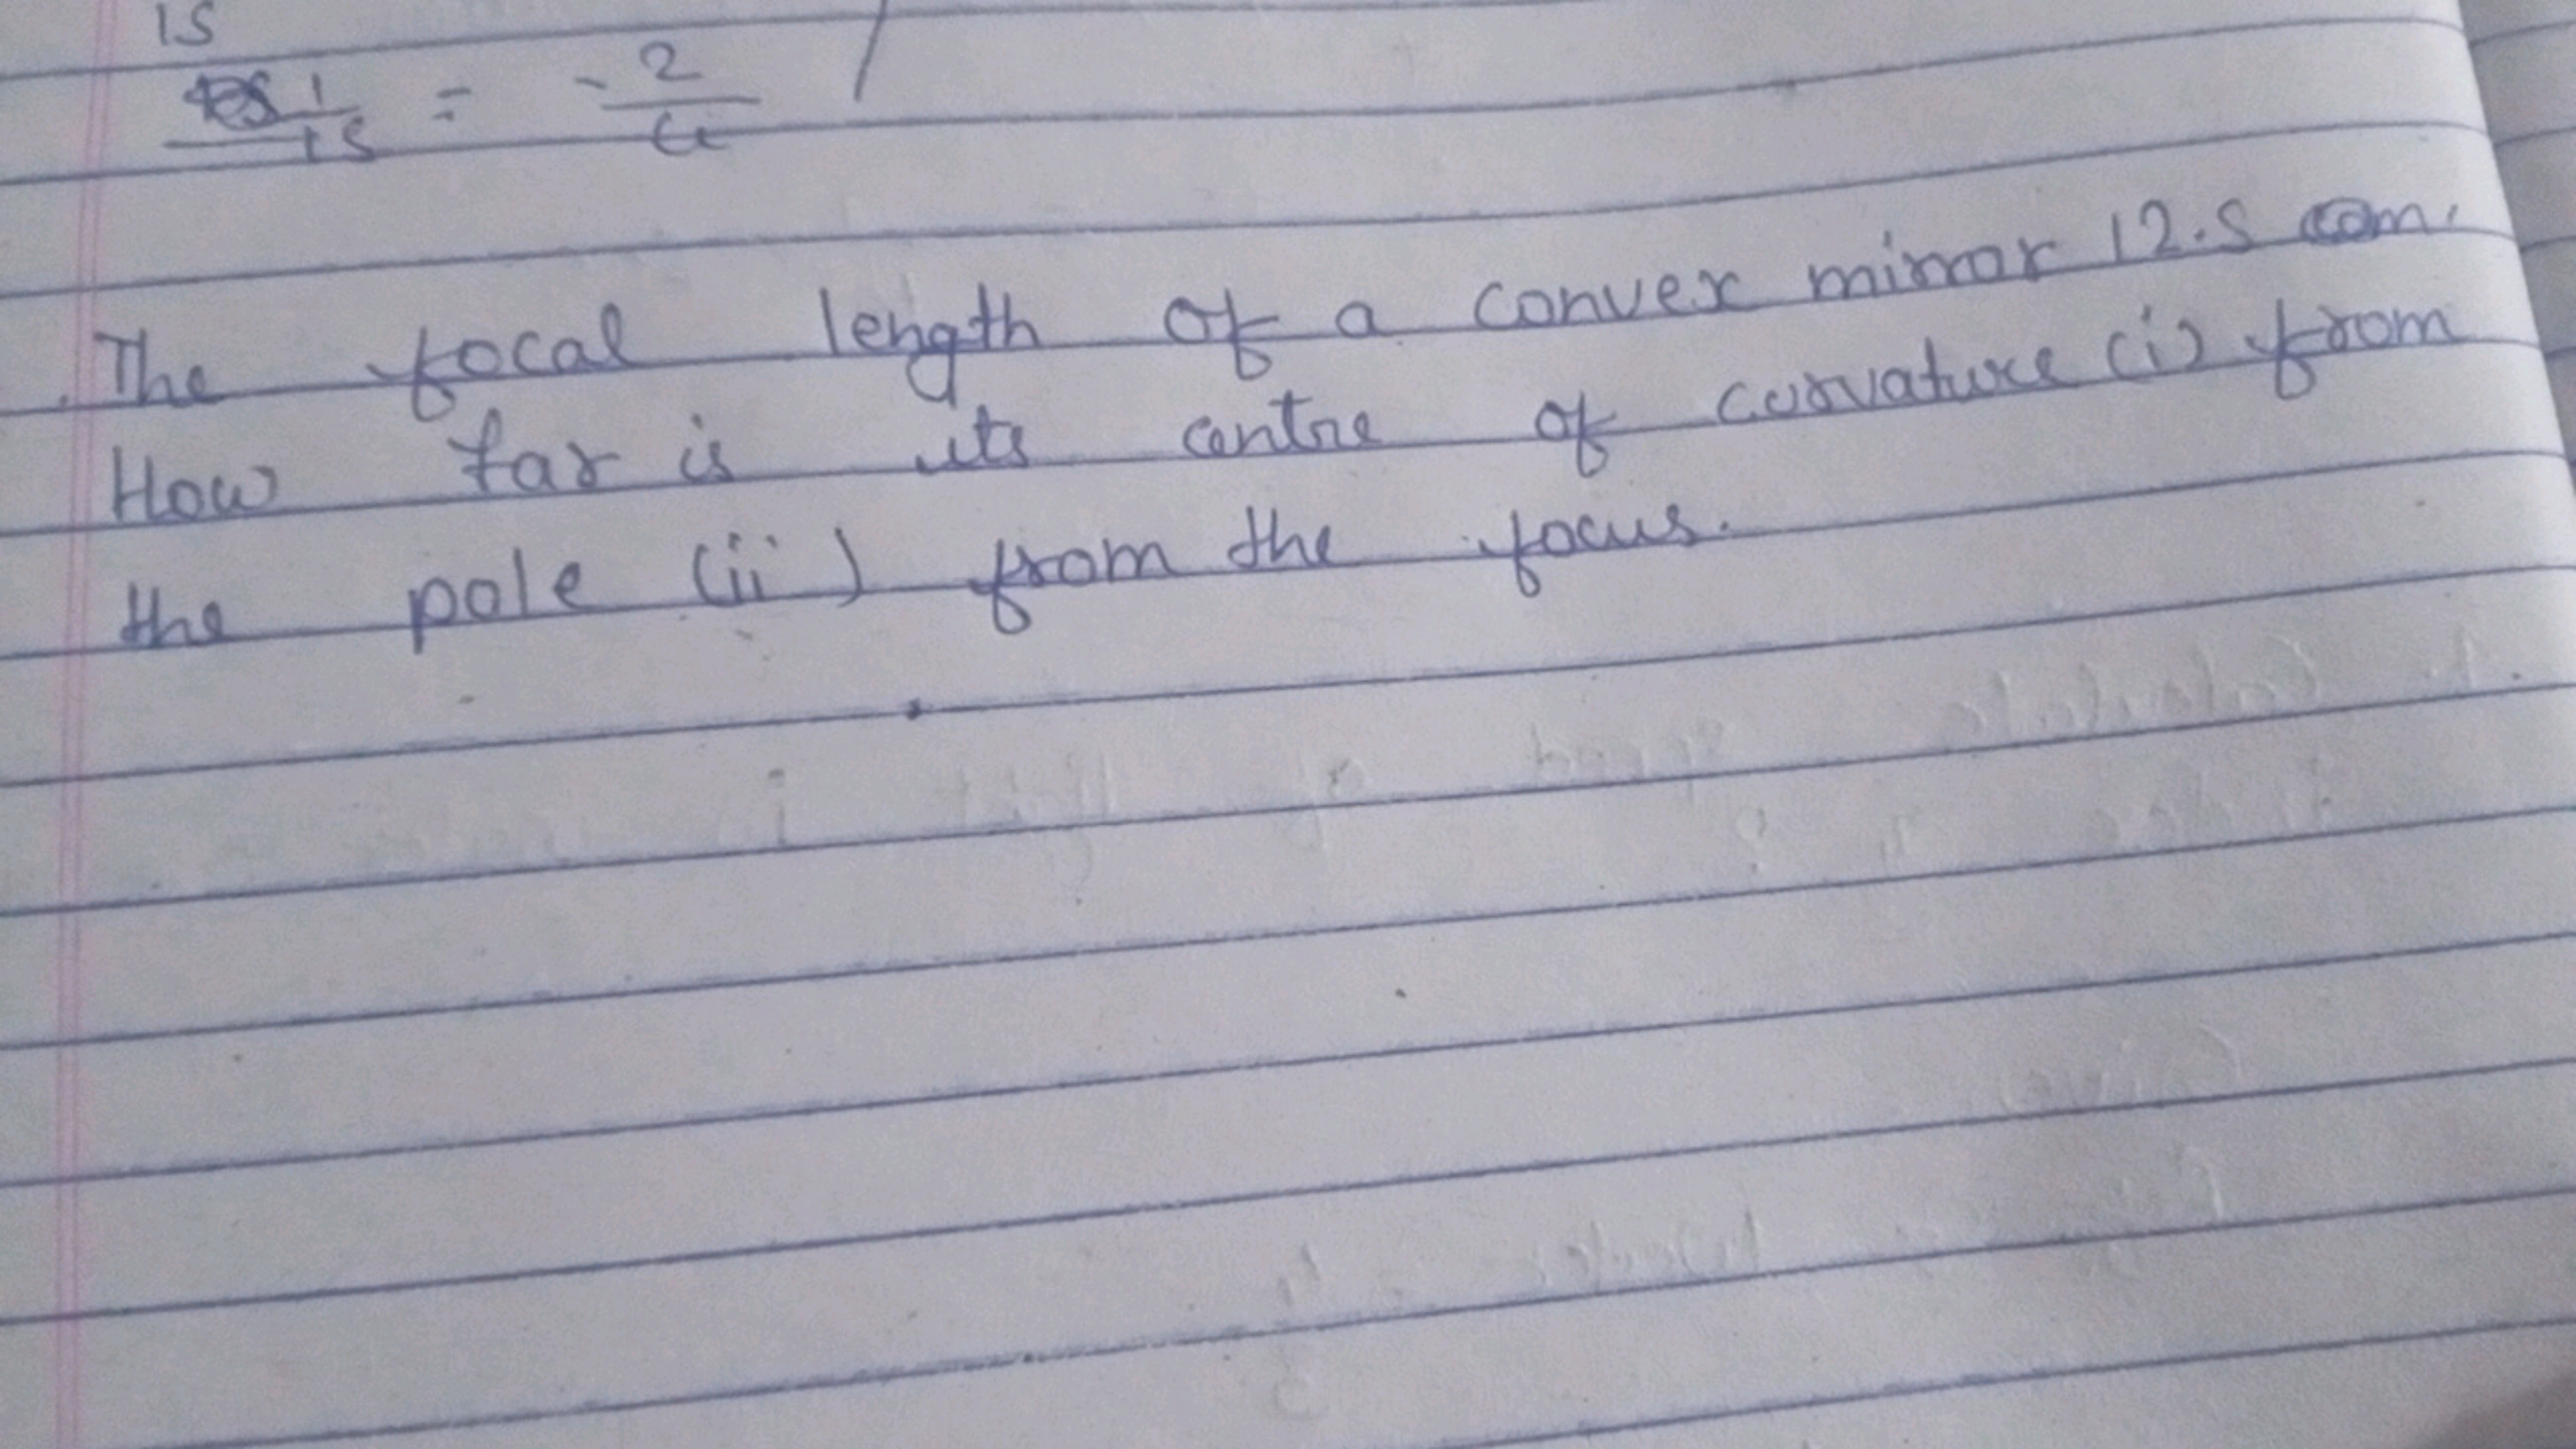 15
1/15 = -2/u /
The focal length of a convex mirror 12.5 cm.
How far is its centre of curvature (i) from
the pole (ii) from the focus.